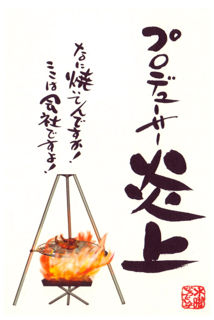 プロデューサー炎上
なに焼いてんですか！
ここは会社ですよ！